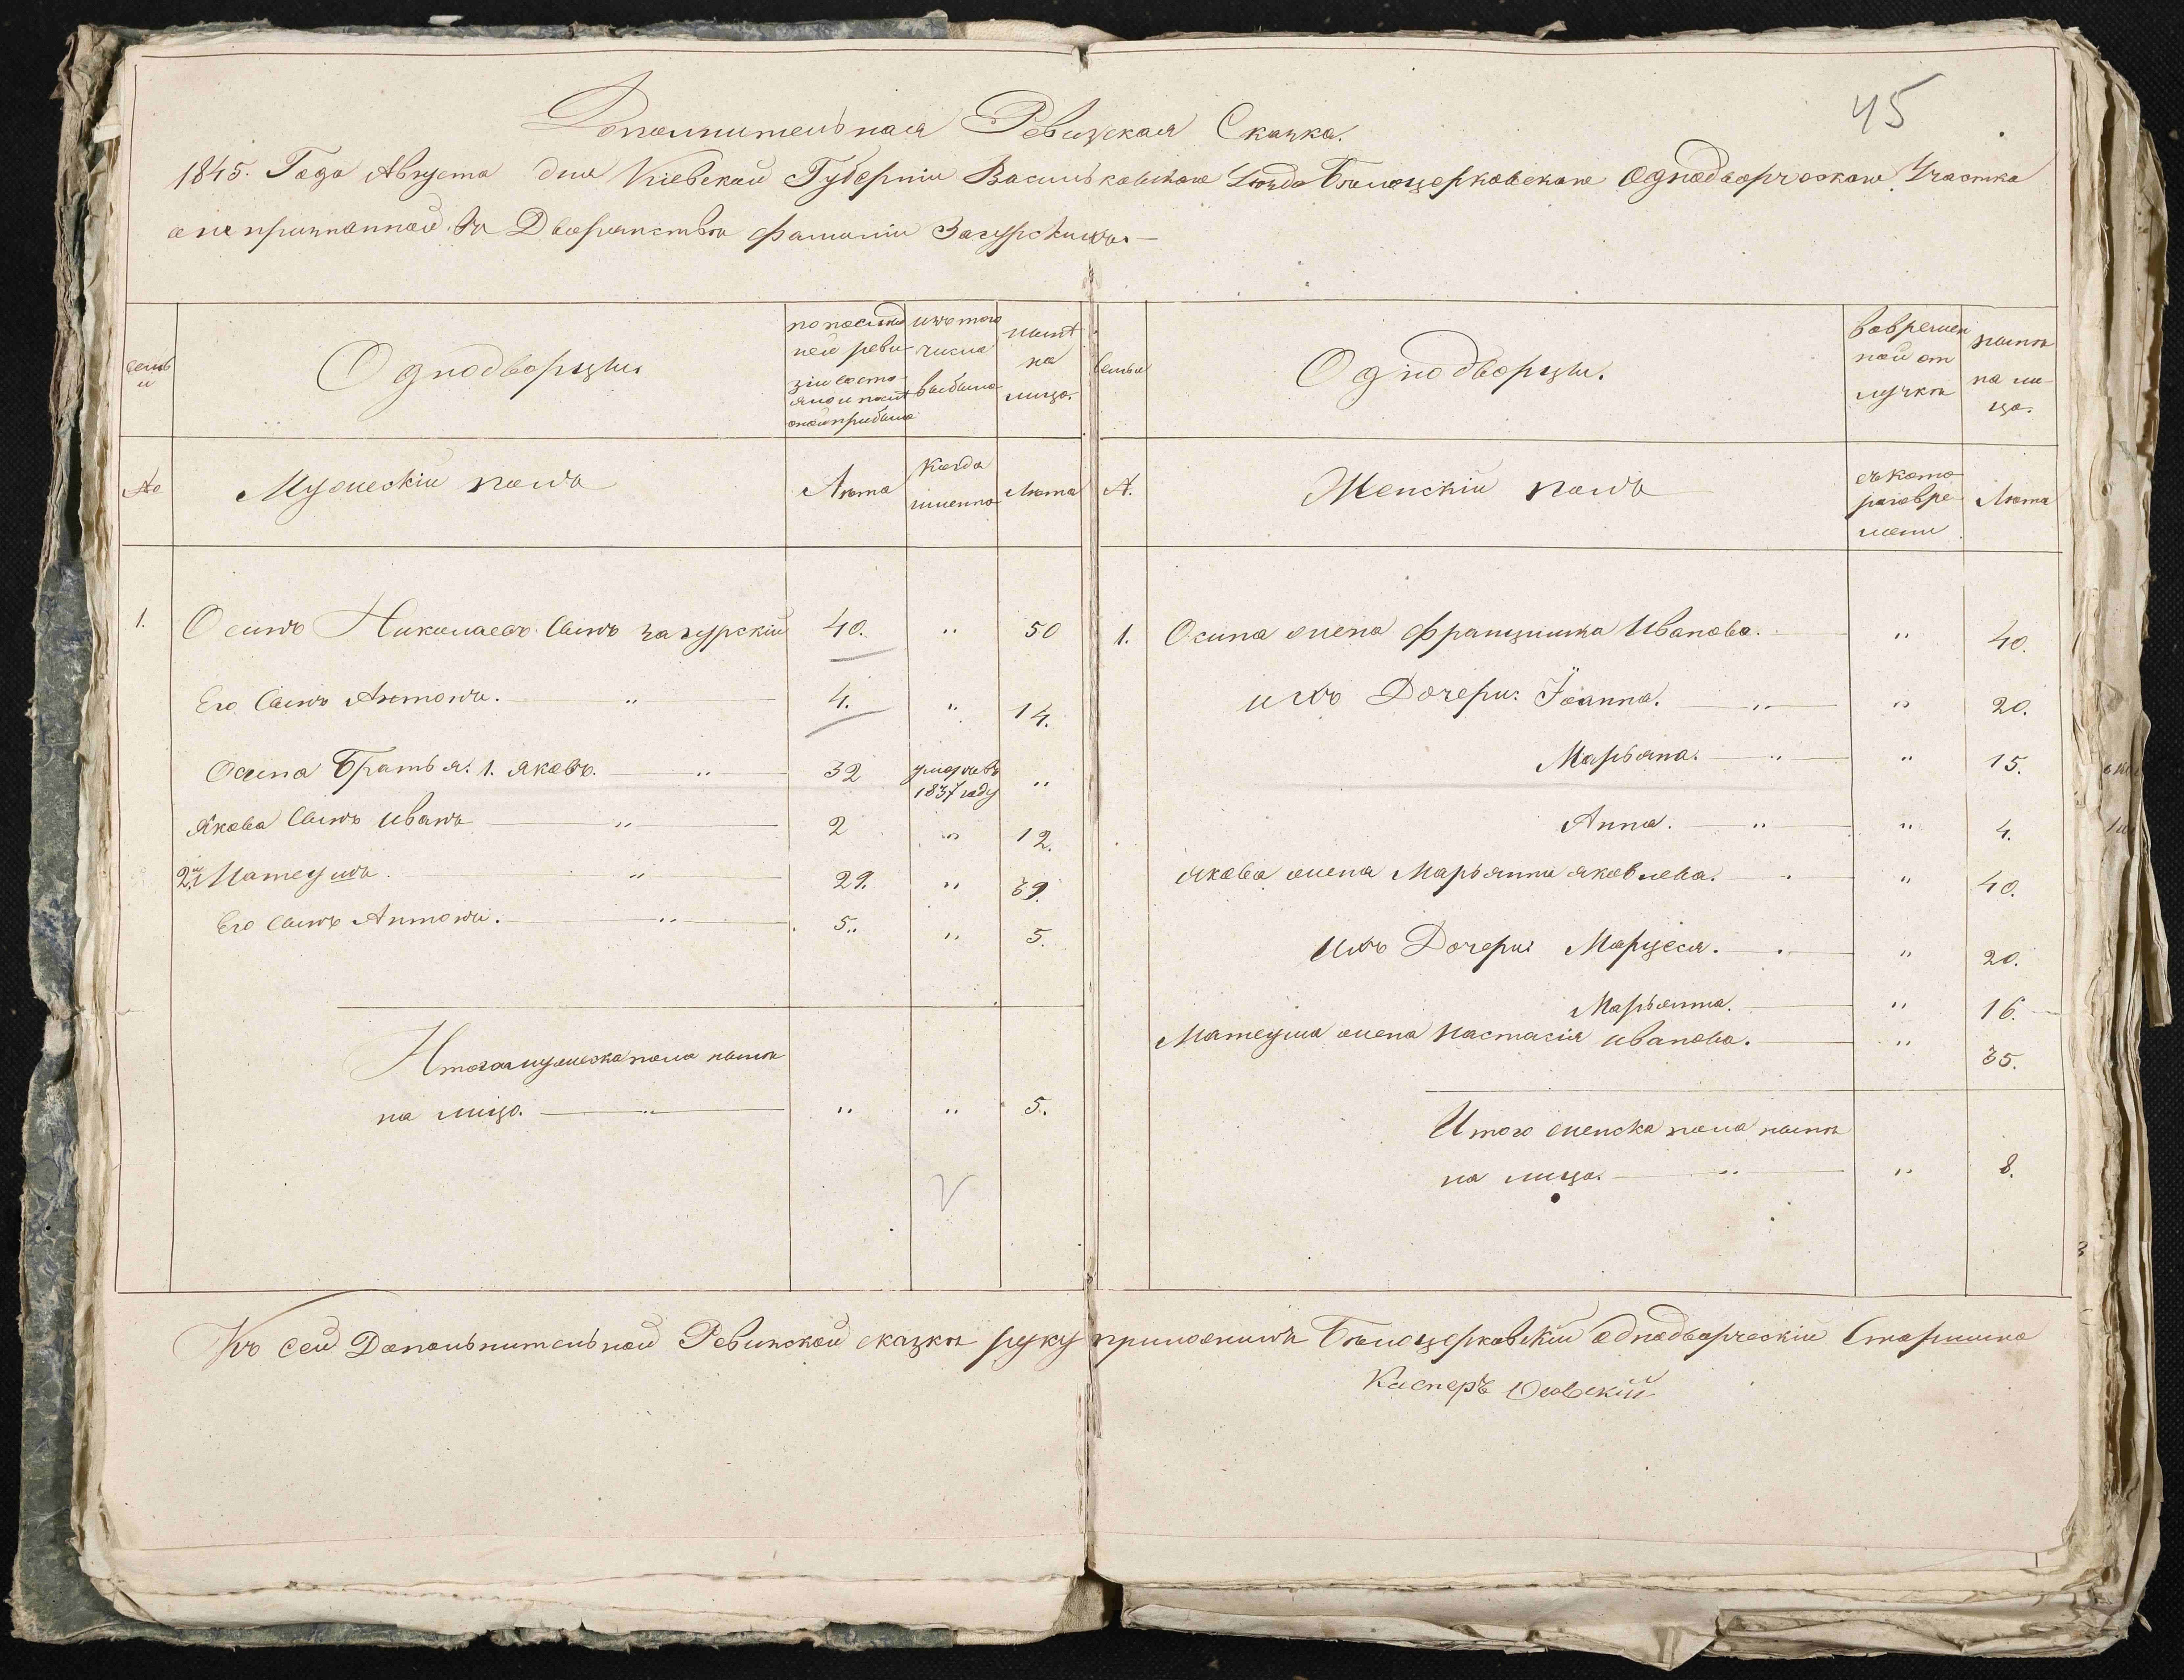 45
Дополнительная Ревизская Сказка.
1845. Года Августа дня Кіевской Губерніи Васильковскаго Уѣзда Бѣлоцерковскаго Однодворческаго Участка
о не признанной въ Дворянствѣ фамиліи Загурскихъ.
семьи
Однодворцы
по последней ревизіи состояло и послѣ оной прибыло
изъ того числа выбыло
нынѣ на лицо.
Семьи
Однодворцы.
во временной отлучкѣ
нынѣ на лицо.
№
Мужескій полъ
Лѣта
Когда именно
Лѣта
№.
Женскій полъ
съ котораго времени
Лѣта
1. Осипъ Николаевъ Сынъ Загурскій 40. " 50
Его Сынъ Антонъ. " 4. " 14.
Осипа Братья: 1. Яковъ. " 32 умеръ въ 1837 году "
Якова Сынъ Иванъ " 2 " 12.
2й Матеушъ " 29. " 39.
Его Сынъ Антонъ. " 5. " 5.
Итого мужеска пола нынѣ
на лицо. " " " 5.
1. Осипа жена Францишка Иванова. " 40.
ихъ Дочери: Іоанна. " " 20.
Марьяна. " " 15.
Анна. " " 4.
Якова жена Марьянна Яковлева. " 40.
Ихъ Дочери: Марцеся. " 20.
Марьянна. " 16.
Матеуша жена Настасія Иванова. " 35.
Итого женска пола нынѣ
на лицо. " " 8.
Къ сей Дополнительной Ревизской сказкѣ руку приложилъ Бѣлоцерковскій однодворческій Старшина
Касперъ